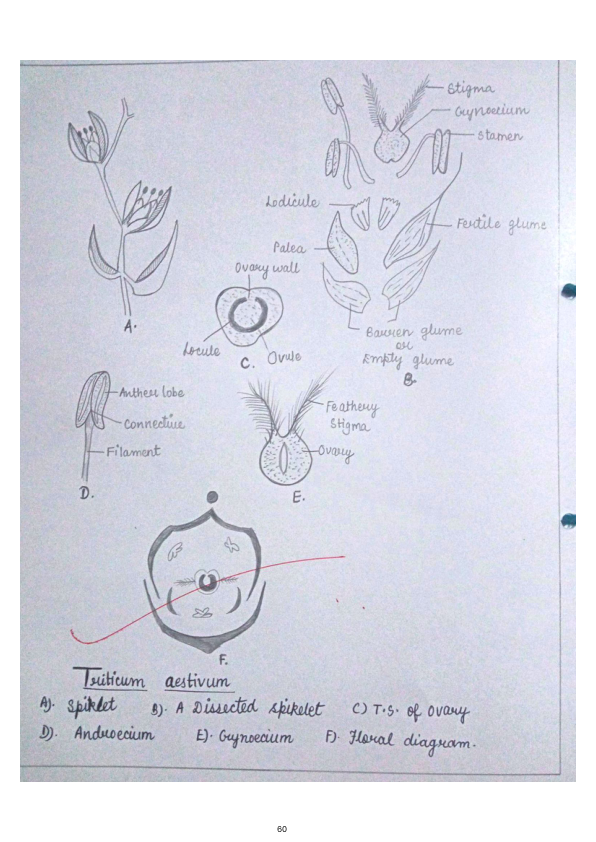 Stigma
Gynoecium
Stamen
Lodicule
Fertile glume
Palea
Ovary wall
A.
Locule
Ovule
C.
Barren glume
or
Empty glume
B.
Anther lobe
Connective
Filament
D.
Feathery
Stigma
Ovary
E.
F.
Triticum aestivum
A). Spiklet B). A Dissected spikelet C) T.S. of Ovary
D). Androecium E). Gynoecium F). Floral diagram.
60